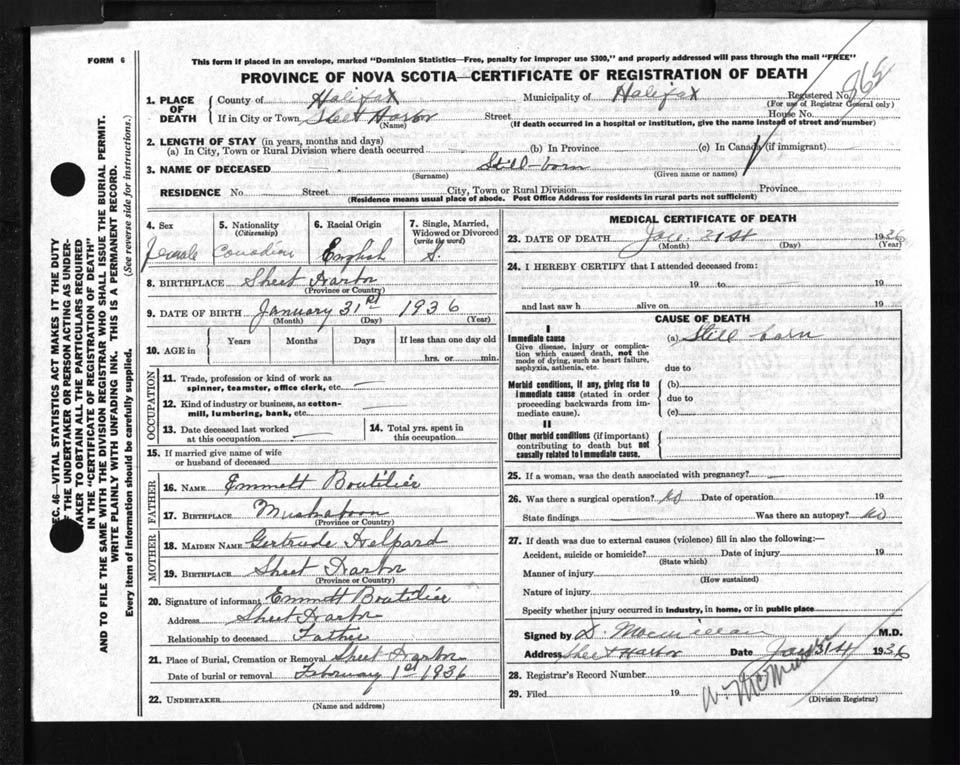 FORM 6
This form if placed in an envelope, marked "Dominion Statistics—Free, penalty for improper use $300," and properly addressed will pass through the mail "FREE"
PROVINCE OF NOVA SCOTIA—CERTIFICATE OF REGISTRATION OF DEATH
EC. 46—VITAL STATISTICS ACT MAKES IT THE DUTY
F THE UNDERTAKER OR PERSON ACTING AS UNDER-
TAKER TO OBTAIN ALL THE PARTICULARS REQUIRED
IN THE "CERTIFICATE OF REGISTRATION OF DEATH"
AND TO FILE THE SAME WITH THE DIVISION REGISTRAR WHO SHALL ISSUE THE BURIAL PERMIT.
WRITE PLAINLY WITH UNFADING INK. THIS IS A PERMANENT RECORD.
Every item of information should be carefully supplied. (See reverse side for Instructions.)
1. PLACE OF DEATH
County of Halifax Municipality of Halifax Registered No. 265
(For use of Registrar General only)
If in City or Town Sheet Harbor Street House No.
(Name) (If death occurred in a hospital or institution, give the name instead of street and number)
2. LENGTH OF STAY (in years, months and days)
(a) In City, Town or Rural Division where death occurred (b) In Province (c) In Canada (if immigrant)
3. NAME OF DECEASED Still-born
(Surname) (Given name or names)
RESIDENCE No. Street City, Town or Rural Division Province
(Residence means usual place of abode. Post Office Address for residents in rural parts not sufficient)
4. Sex
Female
5. Nationality
(Citizenship)
Canadian
6. Racial Origin
English
7. Single, Married,
Widowed or Divorced
(write the word)
S.
8. BIRTHPLACE Sheet Harbor
(Province or Country)
9. DATE OF BIRTH January 31st 1936
(Month) (Day) (Year)
10. AGE in
Years Months Days If less than one day old
hrs. or min.
OCCUPATION
11. Trade, profession or kind of work as
spinner, teamster, office clerk, etc.
12. Kind of industry or business, as cotton-
mill, lumbering, bank, etc.
13. Date deceased last worked
at this occupation
14. Total yrs. spent in
this occupation
15. If married give name of wife
or husband of deceased
FATHER
16. NAME Emmett Boutilier
17. BIRTHPLACE
(Province or Country)
MOTHER
18. MAIDEN NAME Gertrude Helpard
19. BIRTHPLACE Sheet Harbor
(Province or Country)
20. Signature of informant Emmett Boutilier
Address Sheet Harbor
Relationship to deceased Father
21. Place of Burial, Cremation or Removal Sheet Harbor
Date of burial or removal February 1st 1936
22. UNDERTAKER
(Name and address)
MEDICAL CERTIFICATE OF DEATH
23. DATE OF DEATH Jan. 31st 1936
(Month) (Day) (Year)
24. I HEREBY CERTIFY that I attended deceased from:
19 to 19
and last saw h alive on 19
CAUSE OF DEATH
I
Immediate cause
Give disease, injury or complica-
tion which caused death, not the
mode of dying, such as heart failure,
asphyxia, asthenia, etc.
(a) Still born
due to
Morbid conditions, if any, giving rise to
immediate cause (stated in order
proceeding backwards from im-
mediate cause).
(b)
due to
(c)
II
Other morbid conditions (if important)
contributing to death but not
causally related to immediate cause.
25. If a woman, was the death associated with pregnancy?
26. Was there a surgical operation? No Date of operation 19
State findings Was there an autopsy? No
27. If death was due to external causes (violence) fill in also the following:—
Accident, suicide or homicide? Date of injury 19
(State which)
Manner of injury
(How sustained)
Nature of injury
Specify whether injury occurred in industry, in home, or in public place
Signed by D. Macmillan M.D.
Address Sheet Harbor Date Jan 31st 1936
28. Registrar's Record Number
29. Filed 19
(Division Registrar)